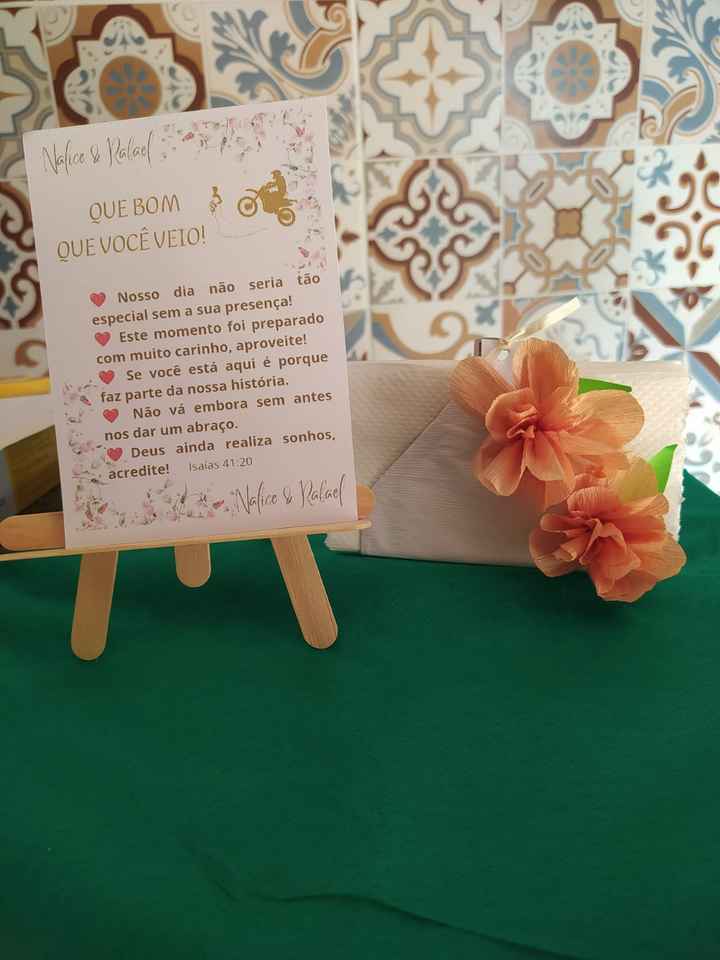 Nalice & Rafael
QUE BOM
QUE VOCÊ VEIO!
Nosso dia não seria tão
especial sem a sua presença!
Este momento foi preparado
com muito carinho, aproveite!
Se você está aqui é porque
faz parte da nossa história.
Não vá embora sem antes
nos dar um abraço.
Deus ainda realiza sonhos,
acredite! Isaías 41:20
Nalice & Rafael